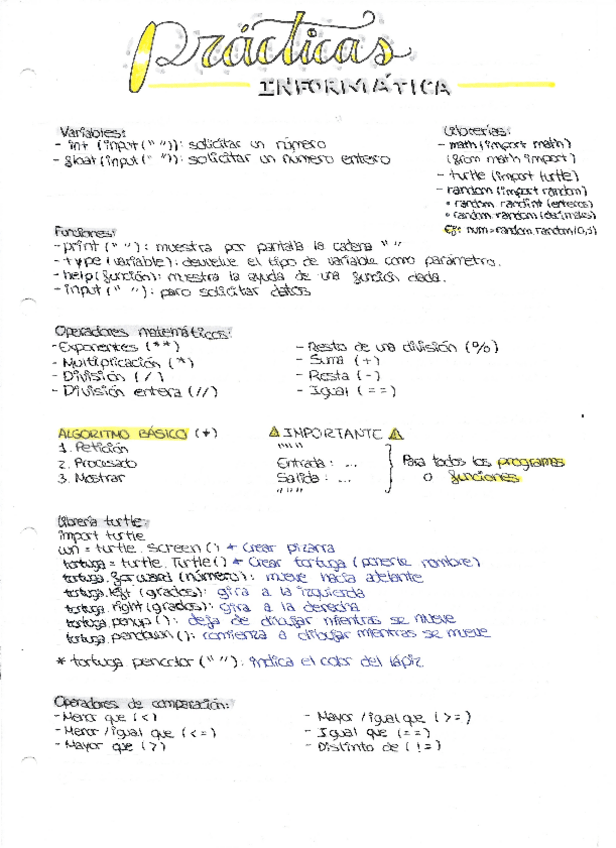 Prácticas
INFORMÁTICA
Variables:
- int (input (" ")): solicitar un número
- float (input (" ")): solicitar un número entero
Librerías:
- math (import math)
(from math import )
- turtle (import turtle)
- random (import random)
* random. randint (enteros)
* random. random (decimales)
Ej: num = random. random (0,1)
Funciones:
- print (" "): muestra por pantalla la cadena " "
- type (variable): devuelve el tipo de variable como parámetro.
- help (función): muestra la ayuda de una función dada.
- input (" "): para solicitar datos
Operadores matemáticos:
- Exponentes (**)
- Multiplicación (*)
- División (/)
- División entera (//)
- Resto de una división (%)
- Suma (+)
- Resta (-)
- Igual (==)
ALGORITMO BÁSICO (+)
1. Petición
2. Procesado
3. Mostrar
⚠ IMPORTANTE ⚠
"""
Entrada: ...
Salida: ...
"""
Para todos los programas
o funciones
Librería turtle:
import turtle
wn = turtle. Screen () * Crear pizarra
tortuga = turtle. Turtle () * Crear tortuga (ponerle nombre)
tortuga. forward (número): mueve hacia adelante
tortuga. left (grados): gira a la izquierda
tortuga. right (grados): gira a la derecha
tortuga. penup (): deja de dibujar mientras se mueve
tortuga. pendown (): comienza a dibujar mientras se mueve
* tortuga pencolor (" "): indica el color del lápiz
Operadores de comparación:
- Menor que (<)
- Menor / igual que (<=)
- Mayor que (>)
- Mayor / igual que (>=)
- Igual que (==)
- Distinto de (!=)